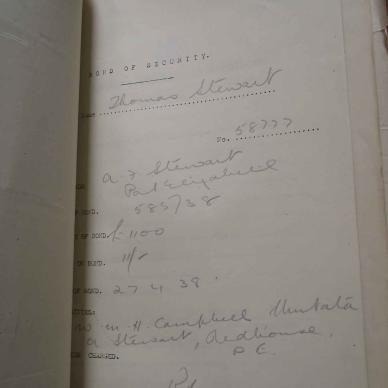 BOND OF SECURITY.
Thomas Stewart
No. 58777
A. F. Stewart
Port Elizabeth
OF BOND. 585/38
OF BOND. £1100
BOND. 11/-
OF BOND. 27 4 38.
W. m. H. Campbell Umtata
A Stewart, Redhouse,
P E.
CHARGED.